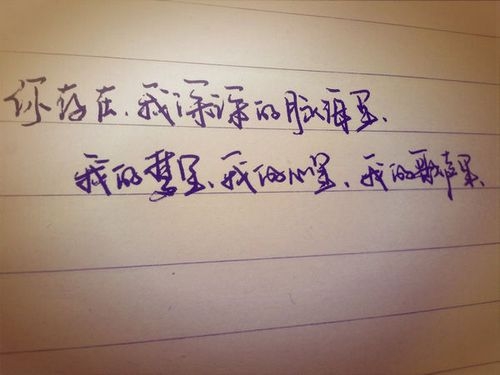 你存在、我深深的脑海里、
我的梦里、我的心里、我的歌声里、